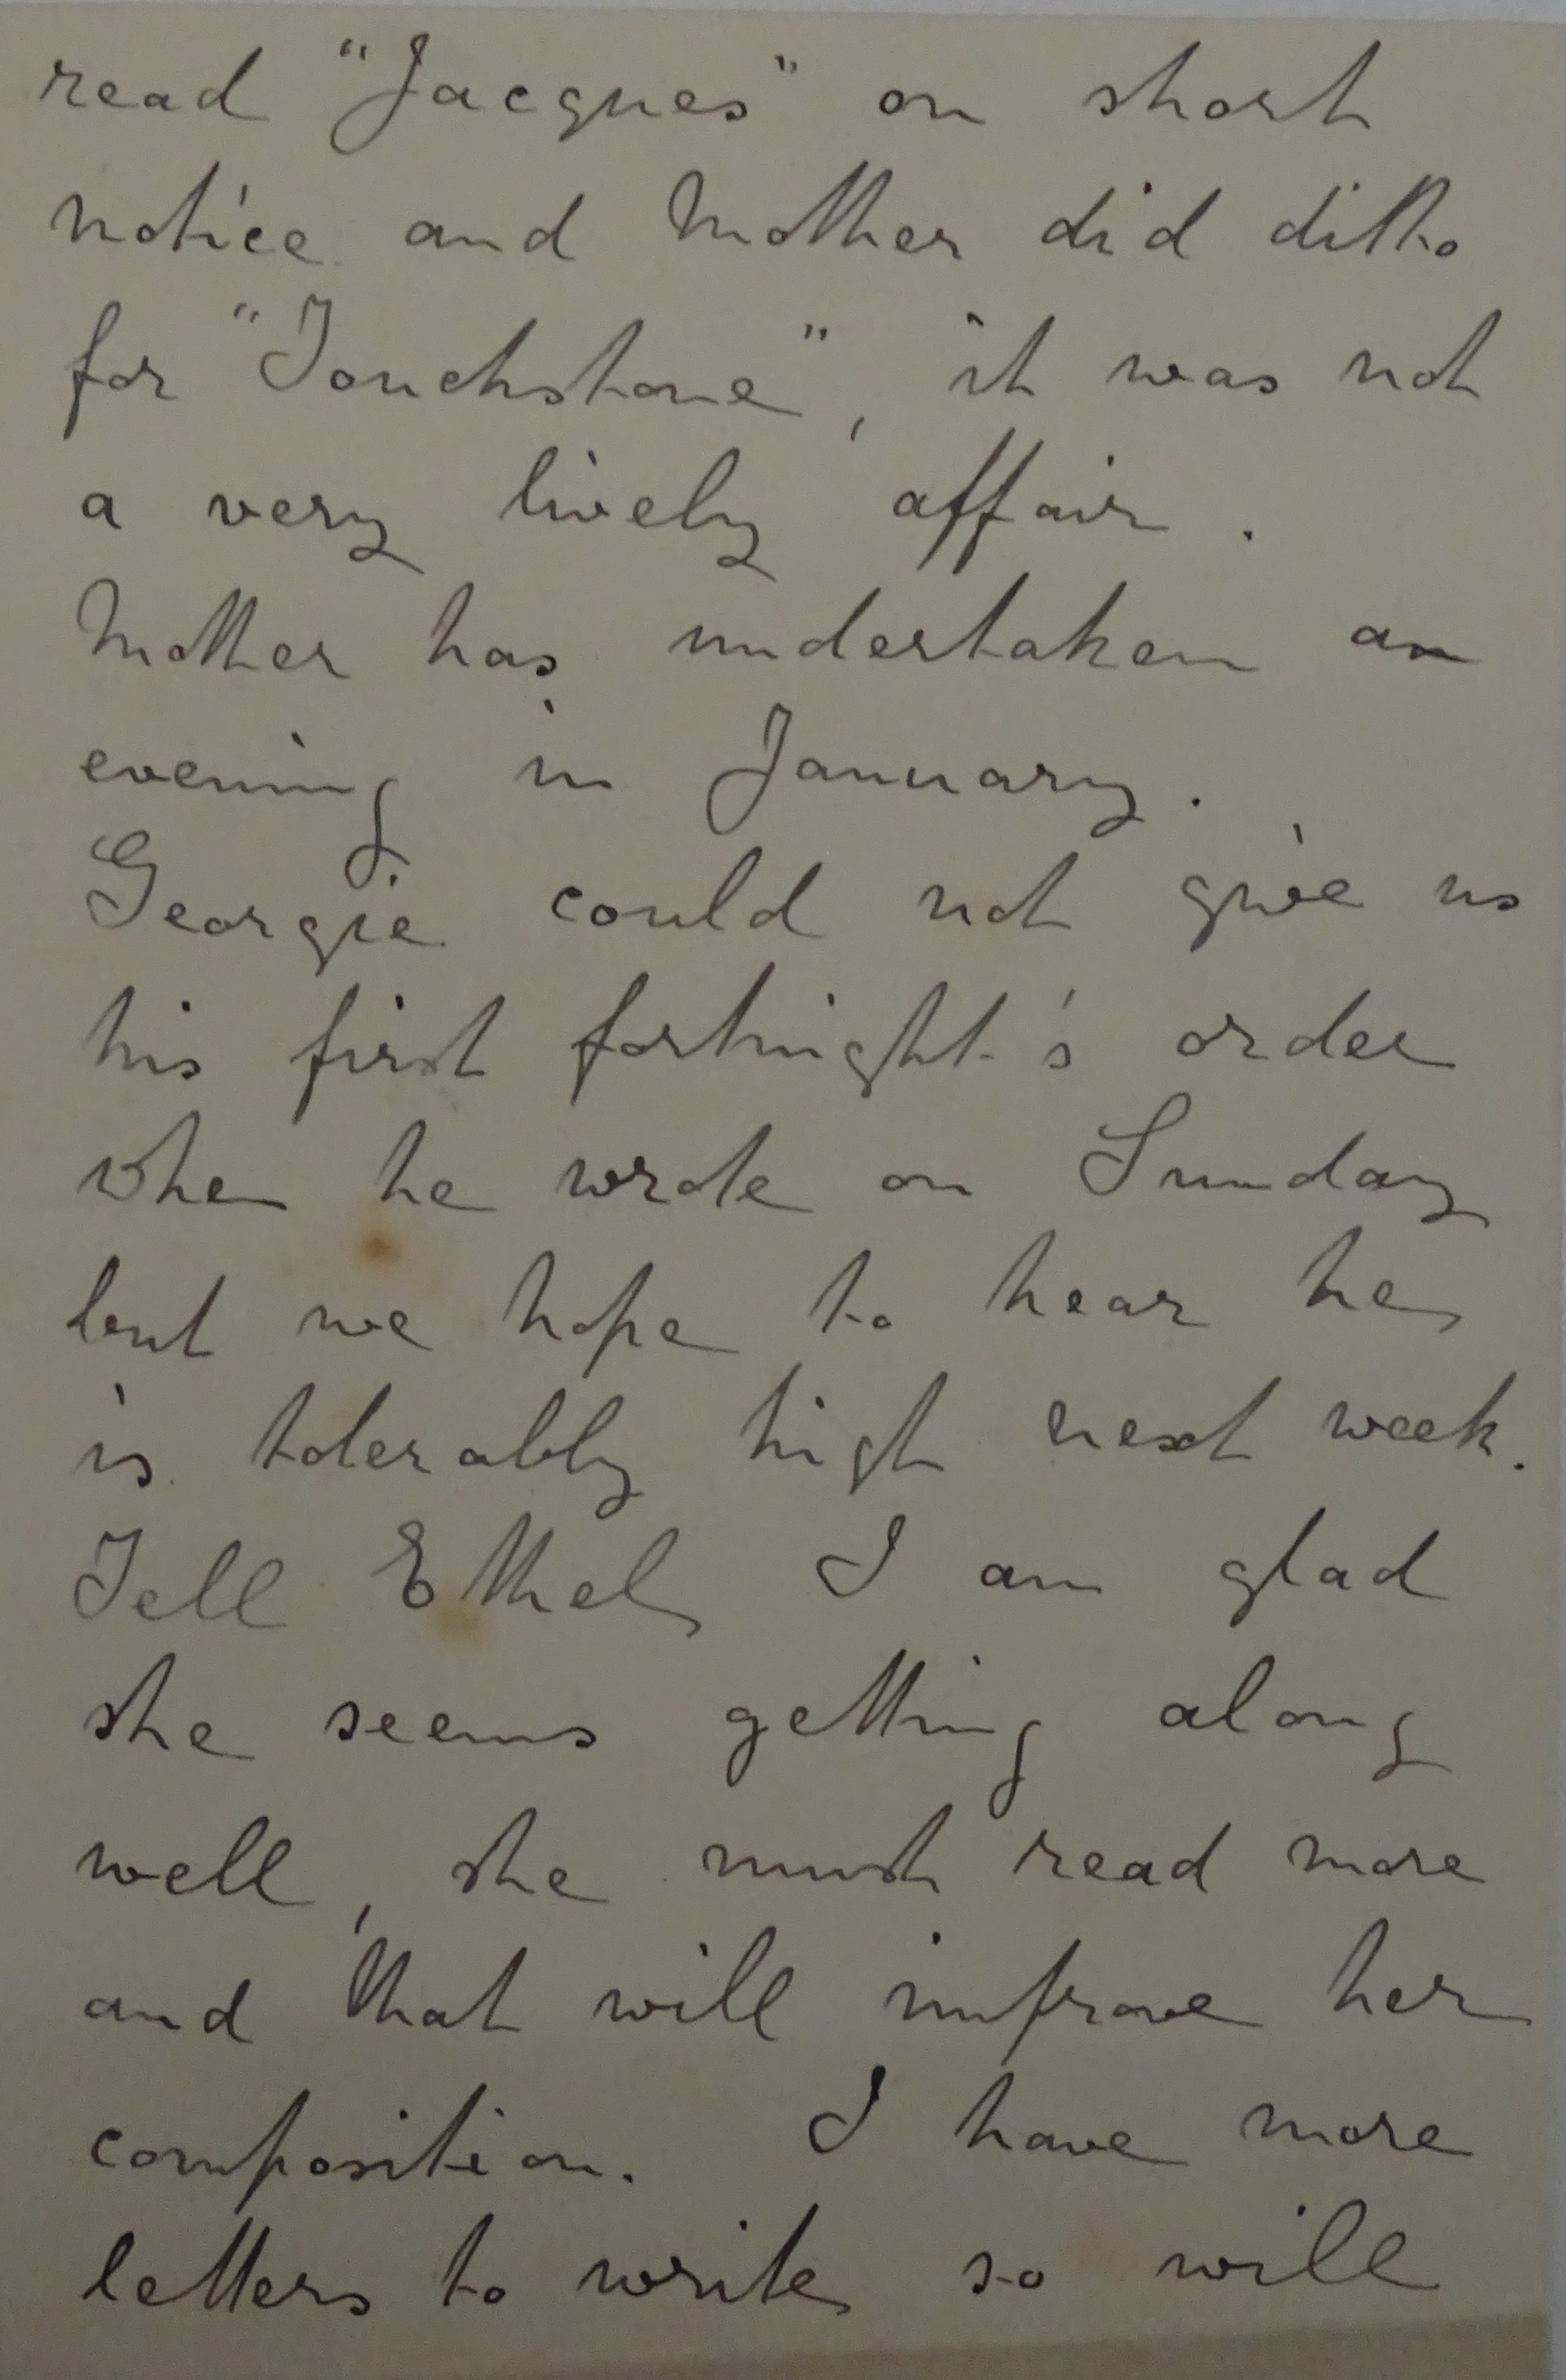 read "Jacques" on short
notice and Mother did ditto
for "Touchstone", it was not
a very lively affair.
Mother has undertaken an
evening in January.
Georgie could not give us
his first fortnight's order
when he wrote on Sunday
but we hope to hear he
is tolerably high next week.
Tell Ethel I am glad
she seems getting along
well, she must read more
and that will improve her
composition. I have more
letters to write so will